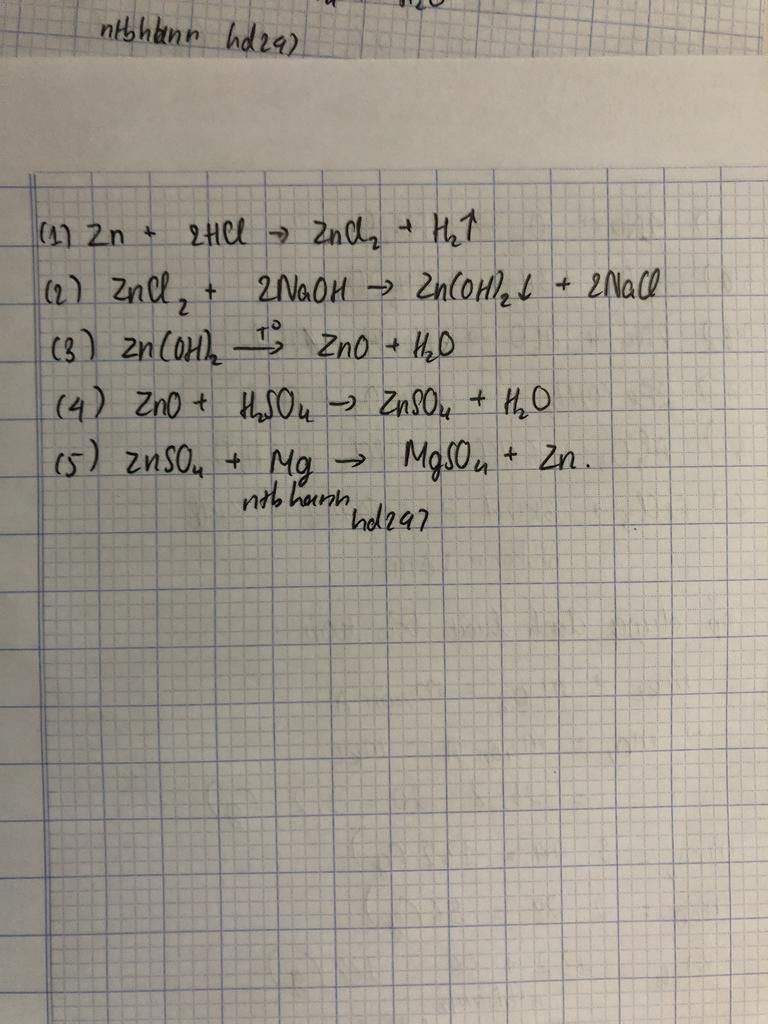 ntbhbnn hd297
(1) Zn + 2HCl → ZnCl₂ + H₂↑
(2) ZnCl₂ + 2NaOH → Zn(OH)₂↓ + 2NaCl
(3) Zn(OH)₂ —t°→ ZnO + H₂O
(4) ZnO + H₂SO₄ → ZnSO₄ + H₂O
(5) ZnSO₄ + Mg → MgSO₄ + Zn.
hd297